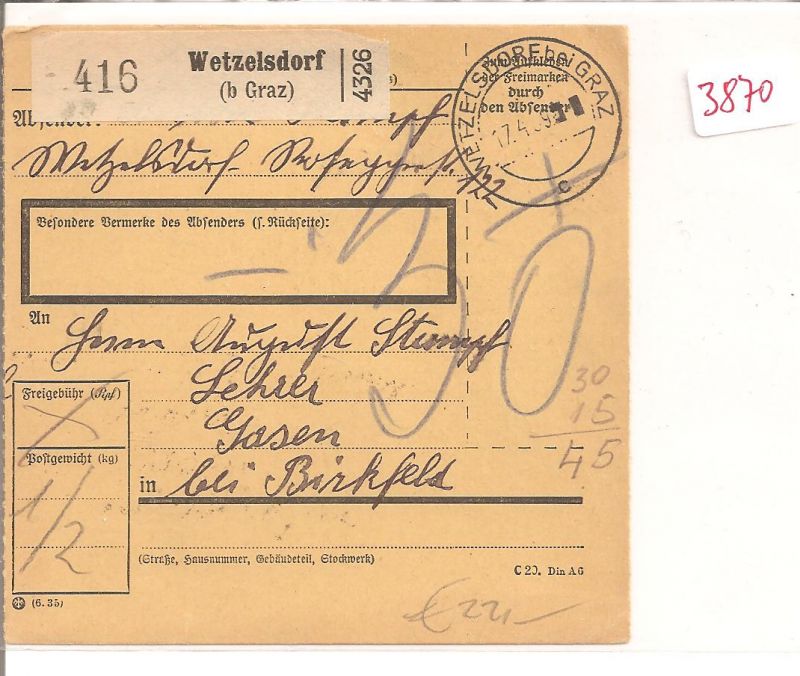 416 Wetzelsdorf
(b Graz)
4326
WETZELSDORF bei GRAZ
17.4.39
c
Zum Aufkleben
der Freimarken
durch
den Absender
3870
Absender:
Wetzelsdorf Roseggerst. 122
Besondere Vermerke des Absenders (s. Rückseite):
An Herrn August Stumpf
Lehrer
Gasen
in bei Birkfeld
Freigebühr (Rpf)
Postgewicht (kg)
1/2
50
30
15
45
(Straße, Hausnummer, Gebäudeteil, Stockwerk)
C 20. Din A6
(6.35)